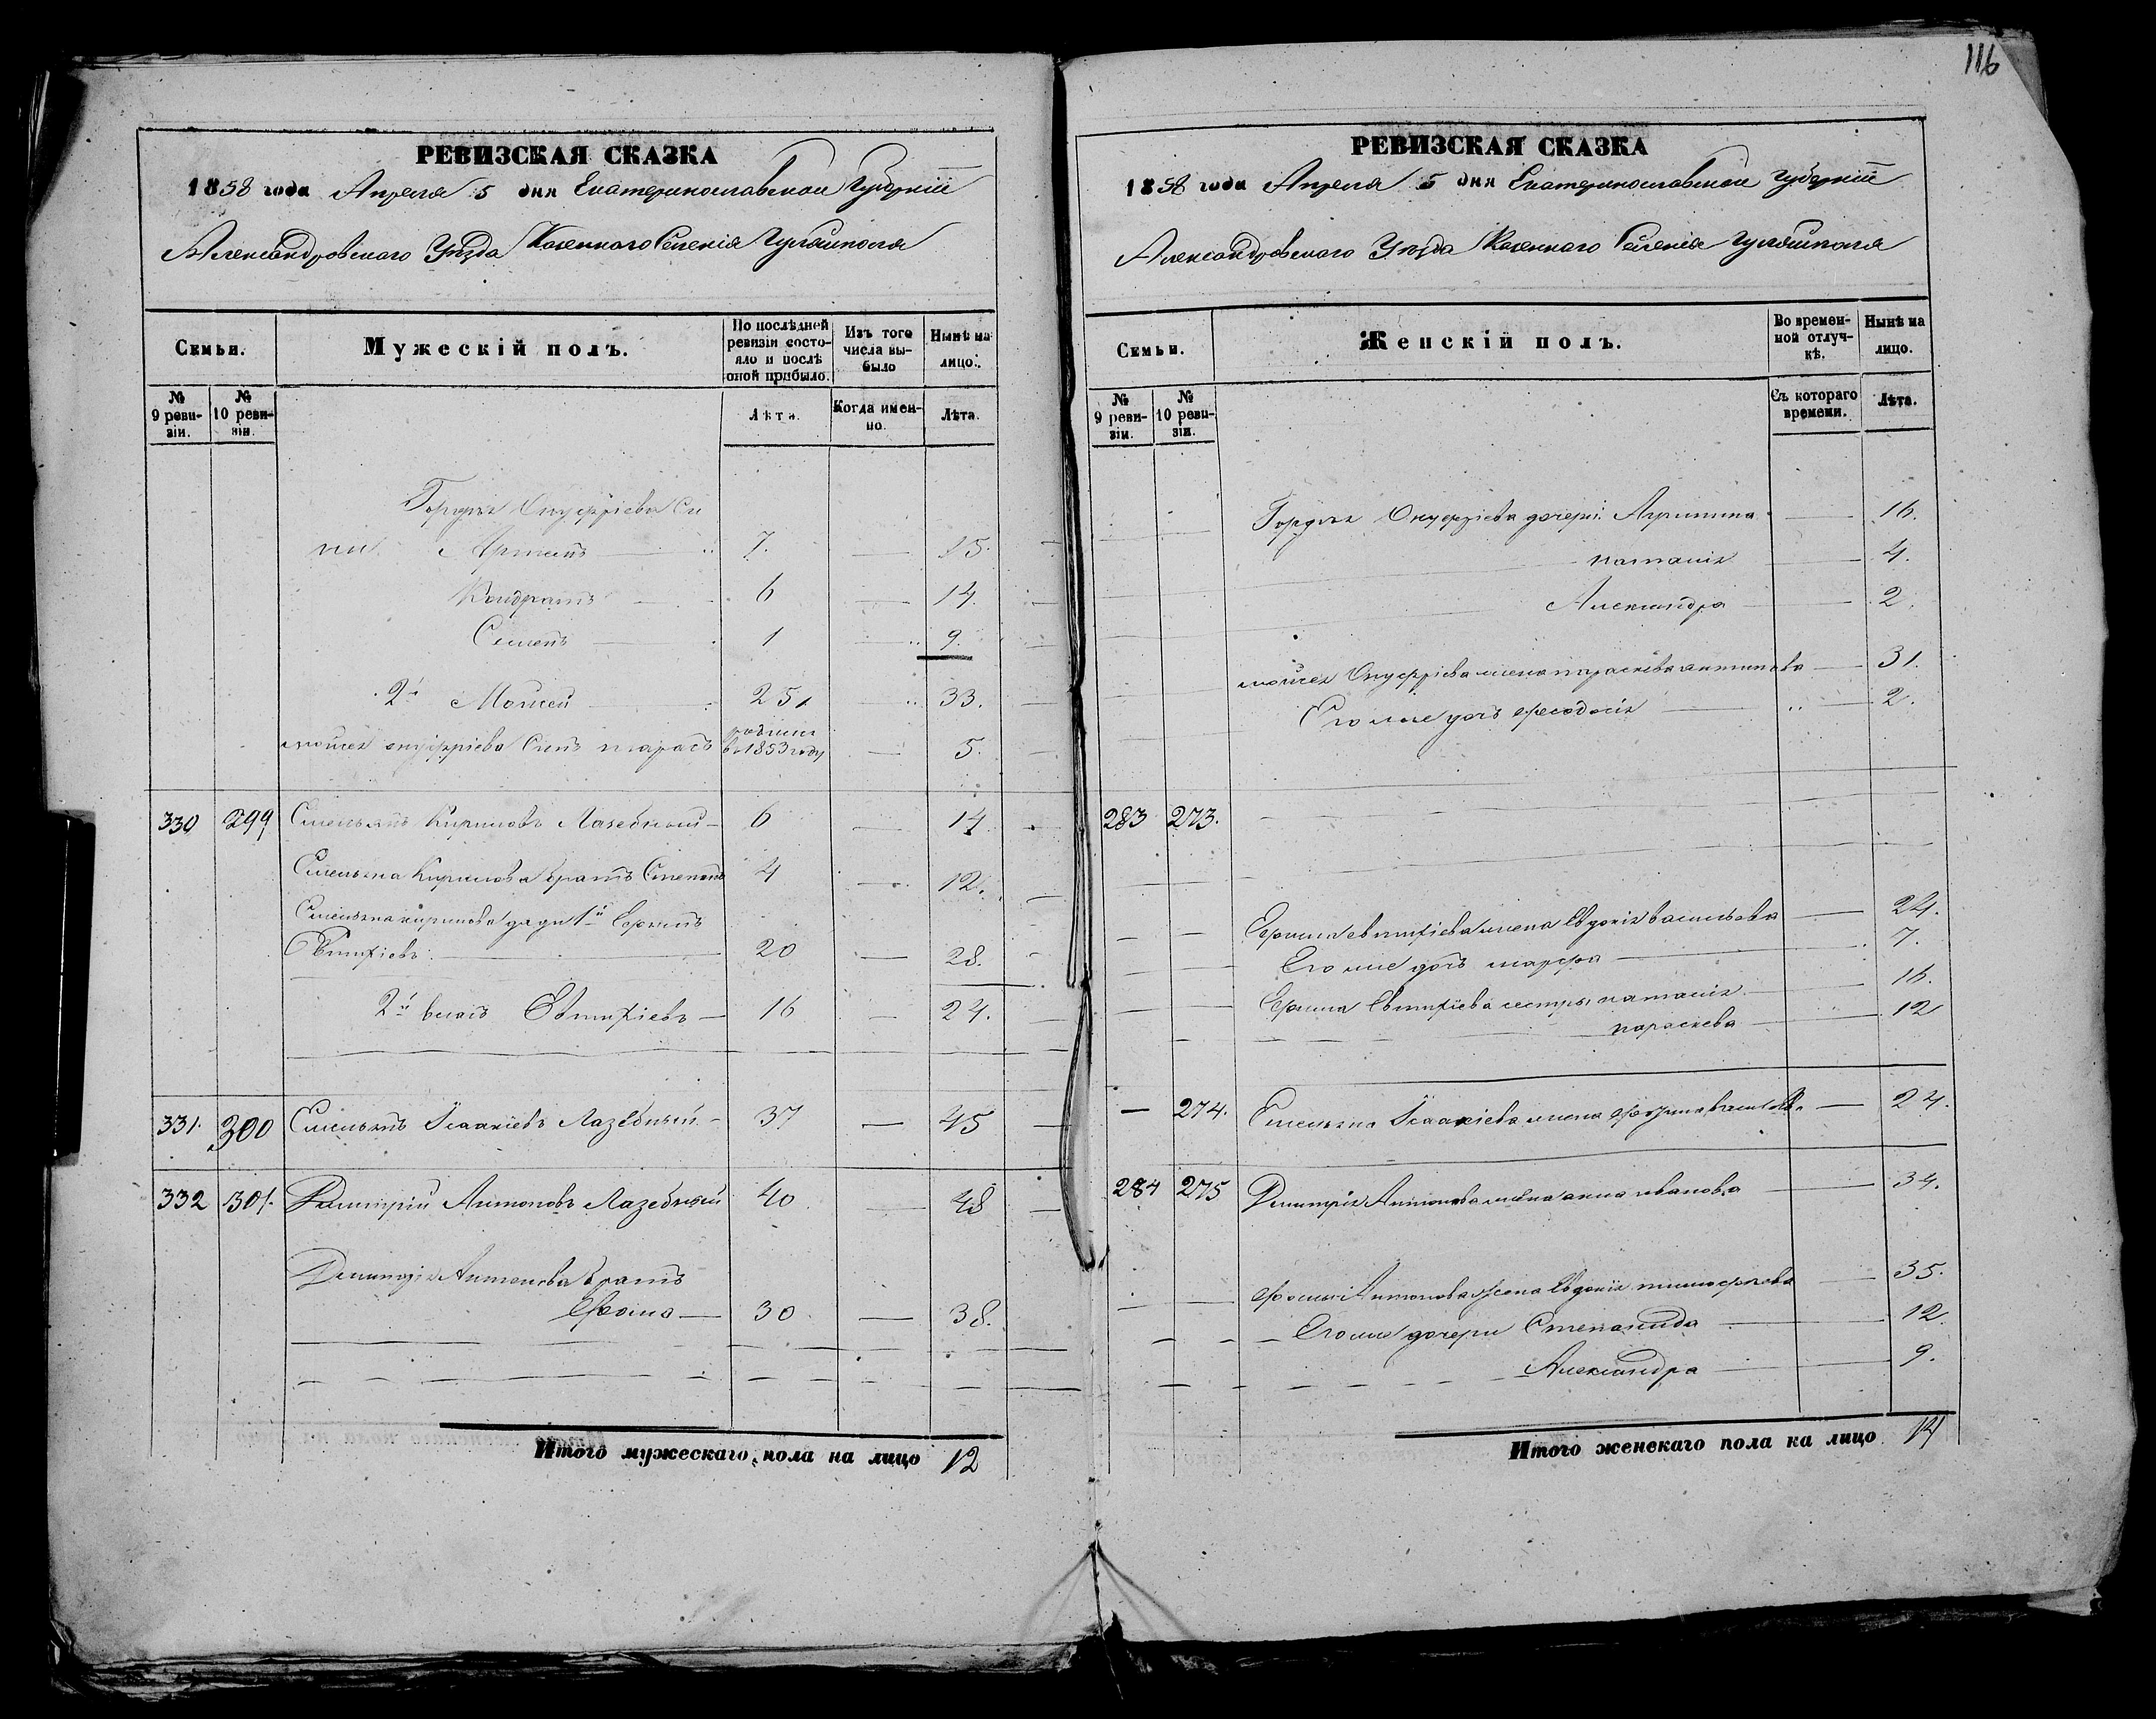 РЕВИЗСКАЯ СКАЗКА
1858 года Апреля 5 дня Екатеринославской Губерніи
Александровскаго Уѣзда Казеннаго Селенія Гуляйполя
Семьи.
Мужескій полъ.
По послѣдней ревизіи состояло и послѣ оной прибыло.
Изъ того числа выбыло
Нынѣ на лицо.
№ 9 ревизіи.
№ 10 ревизіи.
Лѣта.
Когда именно.
Лѣта.
Гордѣя Онуфріева Сы
ны Артемъ 7. 15.
Кондратъ 6 14.
Семенъ 1 9.
2й Мойсей 25 33.
мойсея онуфріева Сынъ тарасъ
родился
въ 1853 году 5.
330 299 Емельянъ Кириловъ Лазебный 6 14
Емельяна Кирилова братъ Степанъ 4 12.
Емельяна кирилова дяди 1й Ефимъ
Евтихіевъ 20 28.
2й власъ Евтихіевъ 16 24.
331. 300 Емельянъ Ісаакіевъ Лазебный 37 45
332 301. Димитрій Антоновъ Лазебный 40 48
Димитрія Антонова братъ
Фома 30 38.
Итого мужескаго пола на лицо 12
116
РЕВИЗСКАЯ СКАЗКА
1858 года Апреля 5 дня Екатеринославской Губерніи
Александровскаго Уѣзда Казеннаго Селенія Гуляйполя
Семьи.
Женскій полъ.
Во временной отлучкѣ.
Нынѣ на лицо.
№ 9 ревизіи.
№ 10 ревизіи.
Съ котораго времени.
Лѣта.
Гордѣя Онуфріева дочери: 16.
наталія 4.
Александра 2.
мойсея Онуфріева жена параскева антипова 31.
Его же дочь феодосія 2.
283 273.
Ефима евтихіева жена Евдокія васильева 24.
Его же дочь марфа 7.
Ефима Евтихіева сестры наталія 16.
параскева 12
274. Емельяна Ісаакіева жена 24.
284 275 Димитрія Антонова жена анна иванова 34.
фомы Антонова Жена Евдокія тимофѣева 35.
Его же дочери Степанида 12.
Александра 9.
Итого женскаго пола на лицо 14